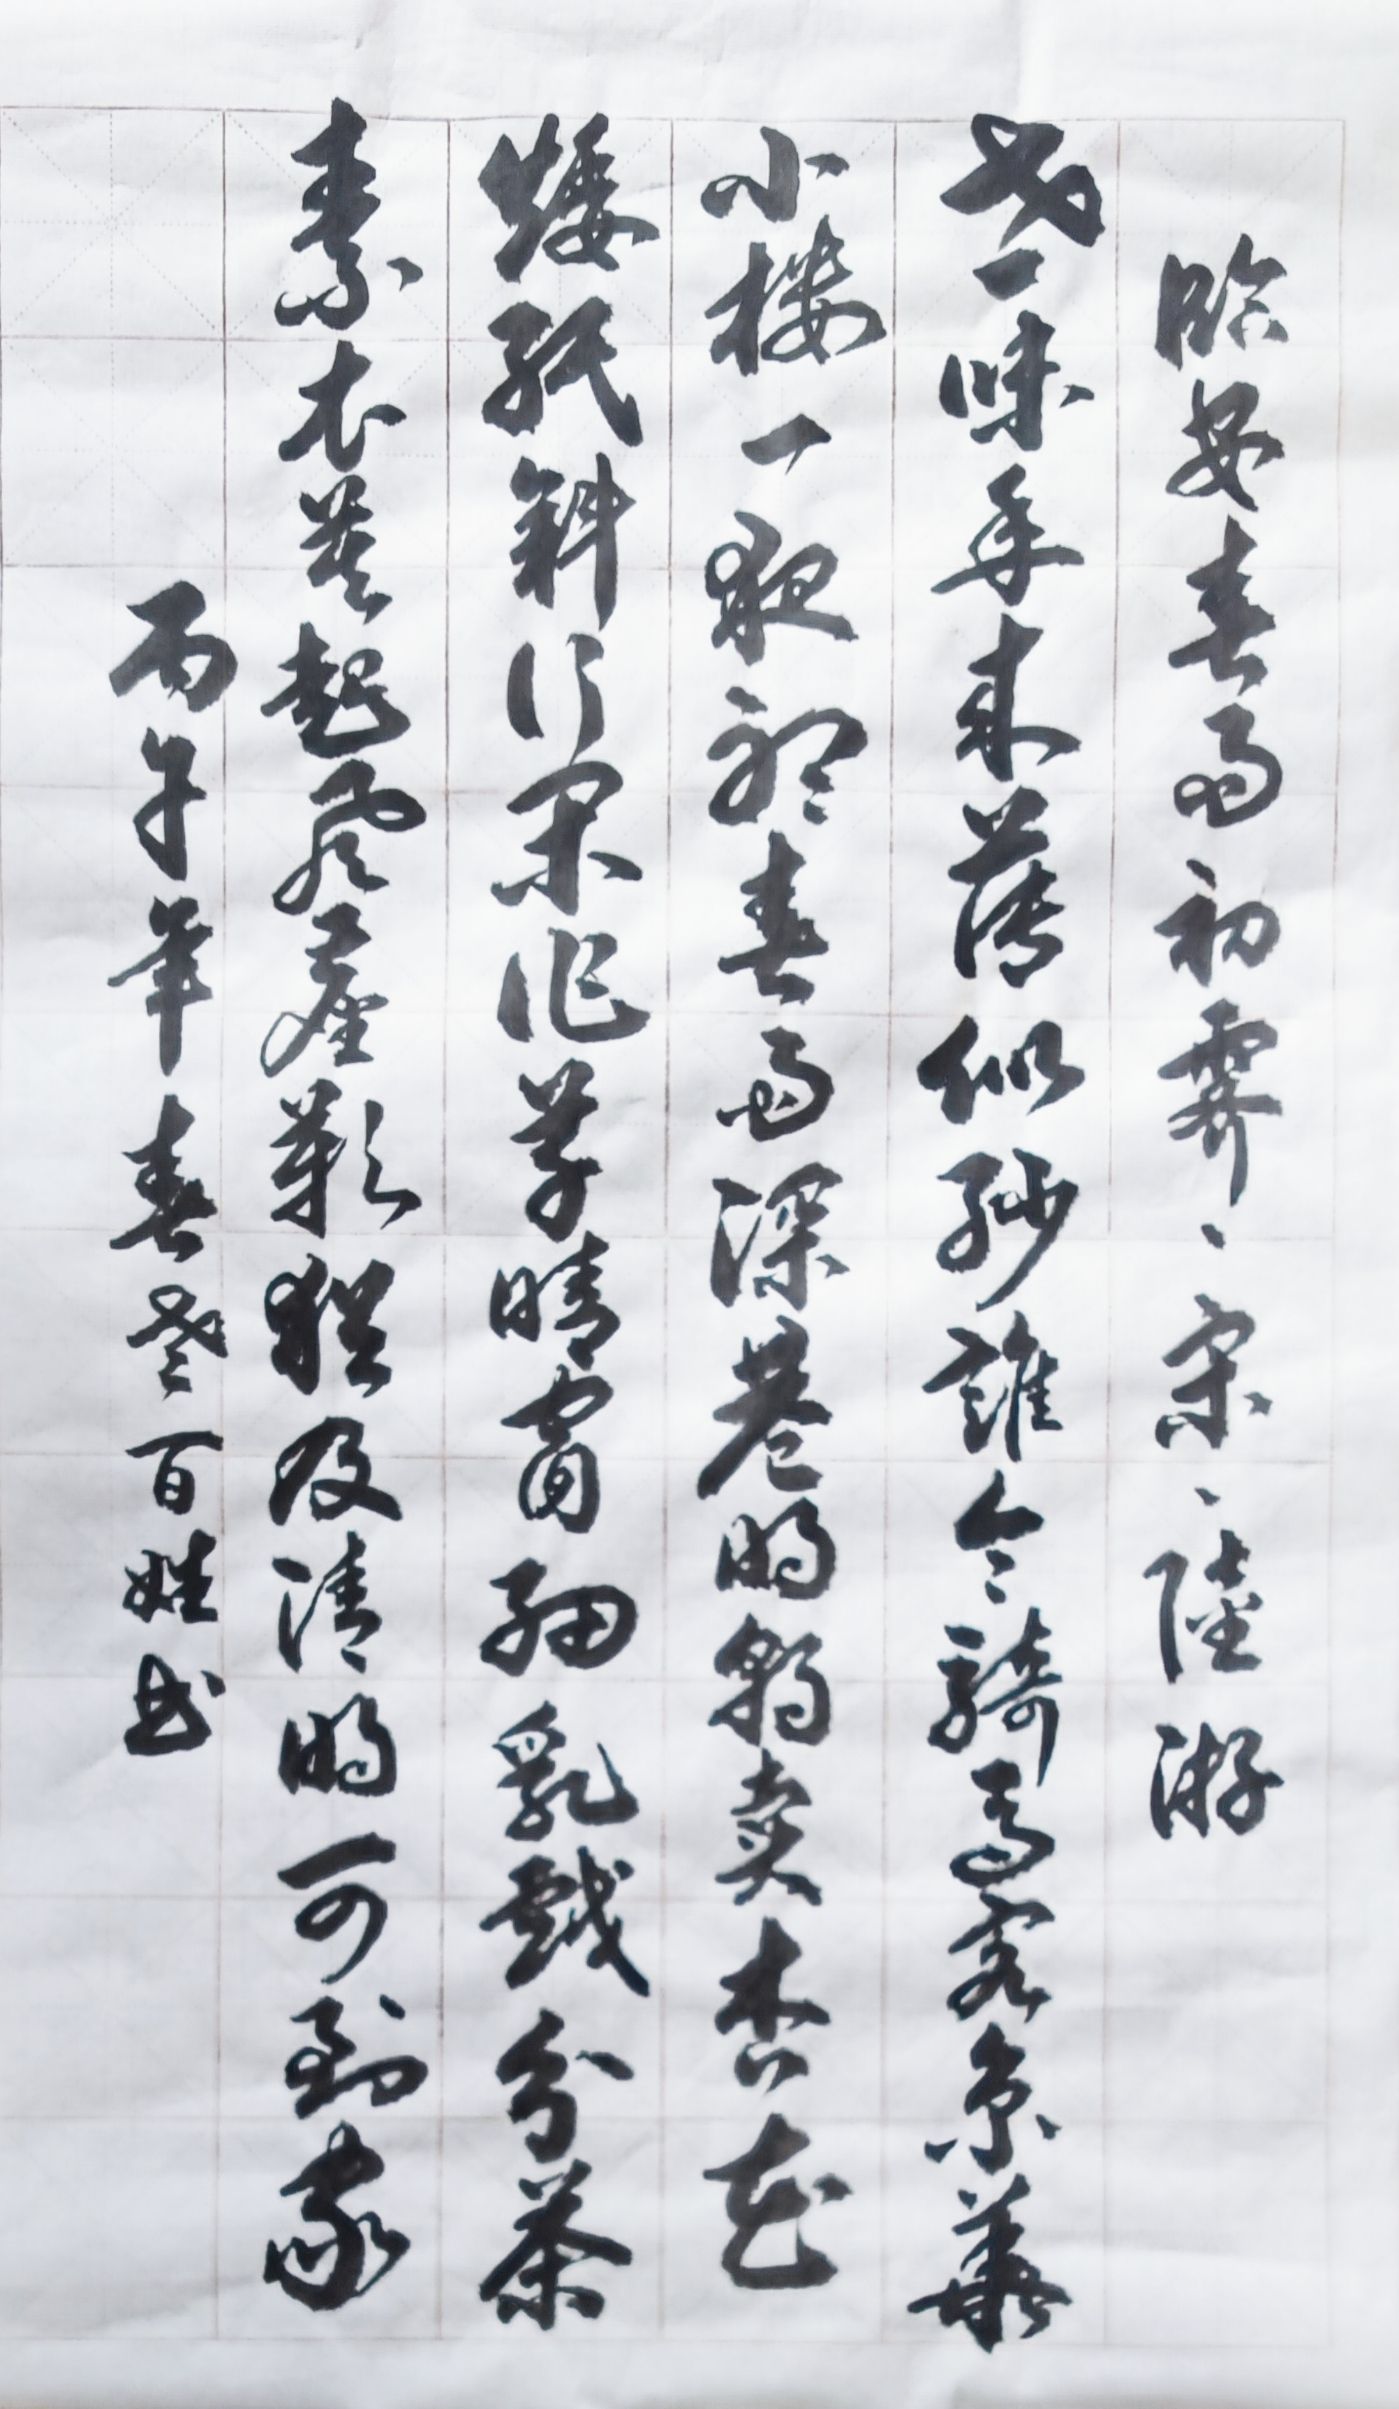 臨安春雨初霽、宋、陸游
世味年来薄似紗誰令騎馬客京華
小楼一夜聽春雨深巷明朝賣杏花
矮紙斜行閑作草晴窗細乳戲分茶
素衣莫起風塵歎猶及清明可到家
丙午年春老百姓书